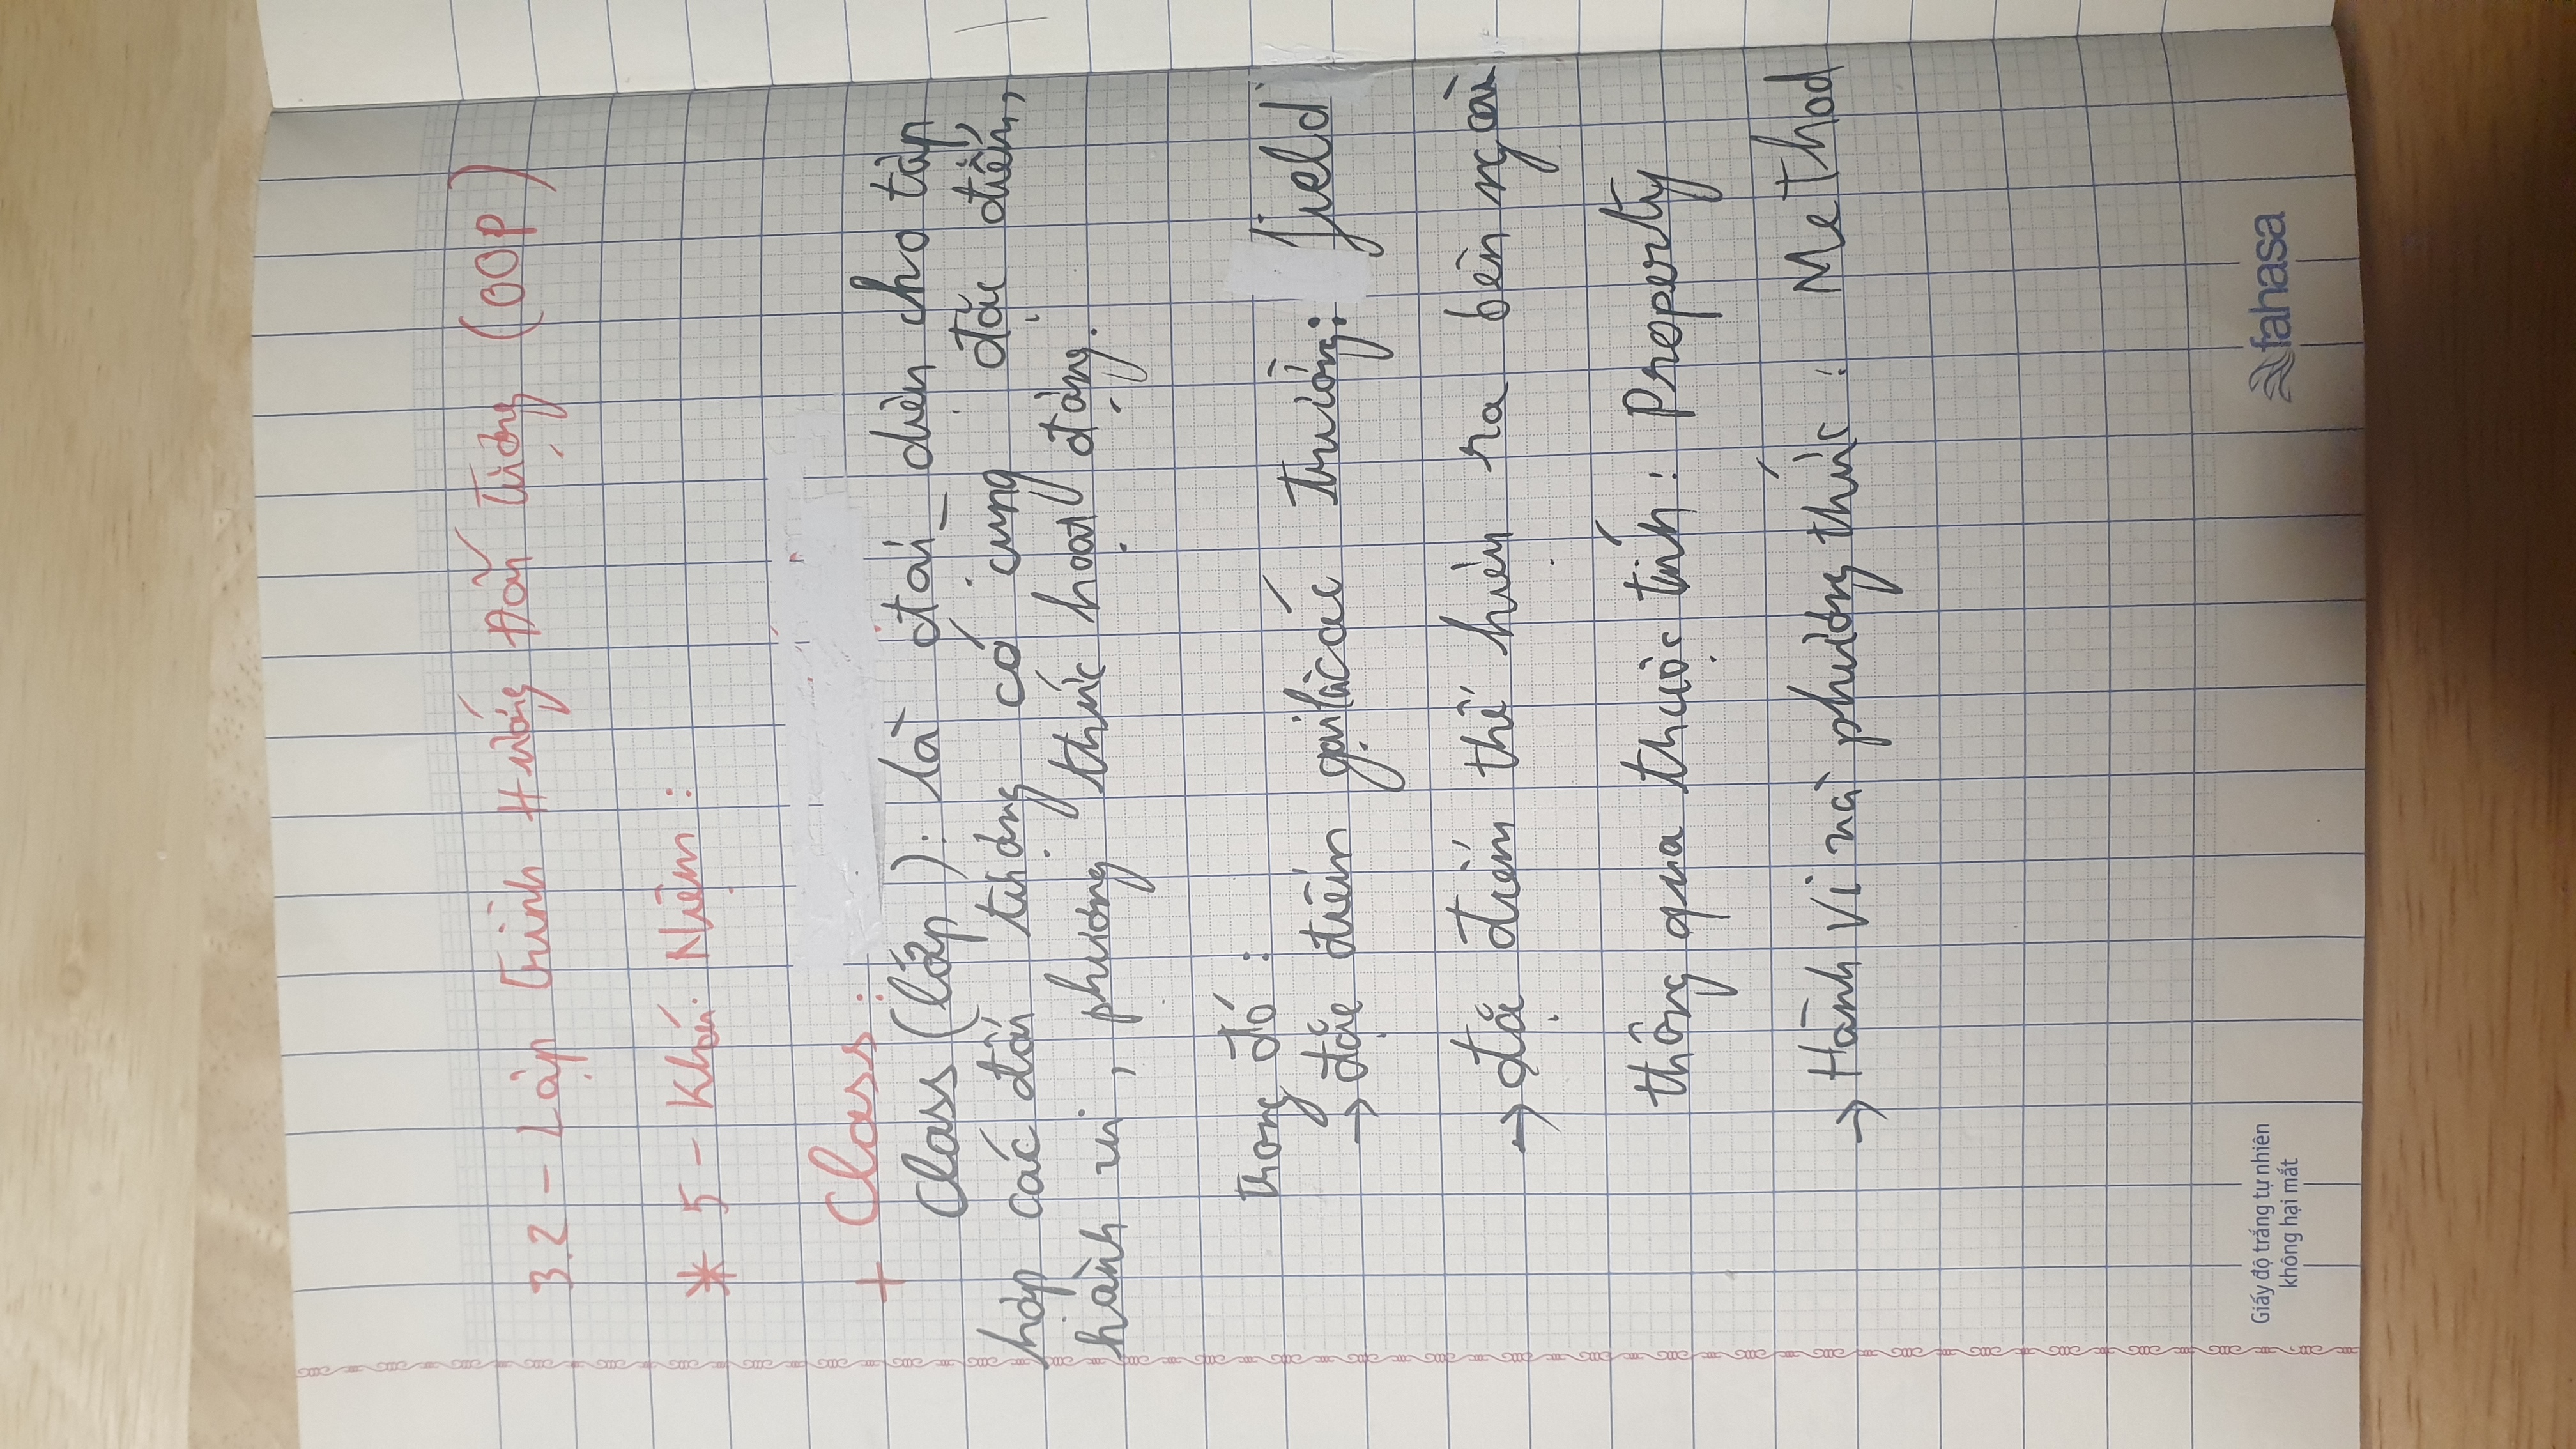 3.2 - Lập trình Hướng Đối Tượng (OOP)
* 5 - Khái Niệm :
+ Class :
Class (lớp) : là đại diện cho tập
hợp các đối tượng có cùng đặc điểm,
hành vi, phương thức hoạt động.
trong đó :
→ đặc điểm gọi là các trường: field
→ đặc điểm thể hiện ra bên ngoài
thông qua thuộc tính : Property
→ Hành vi và phương thức : Method
Giấy độ trắng tự nhiên
không hại mắt
fahasa